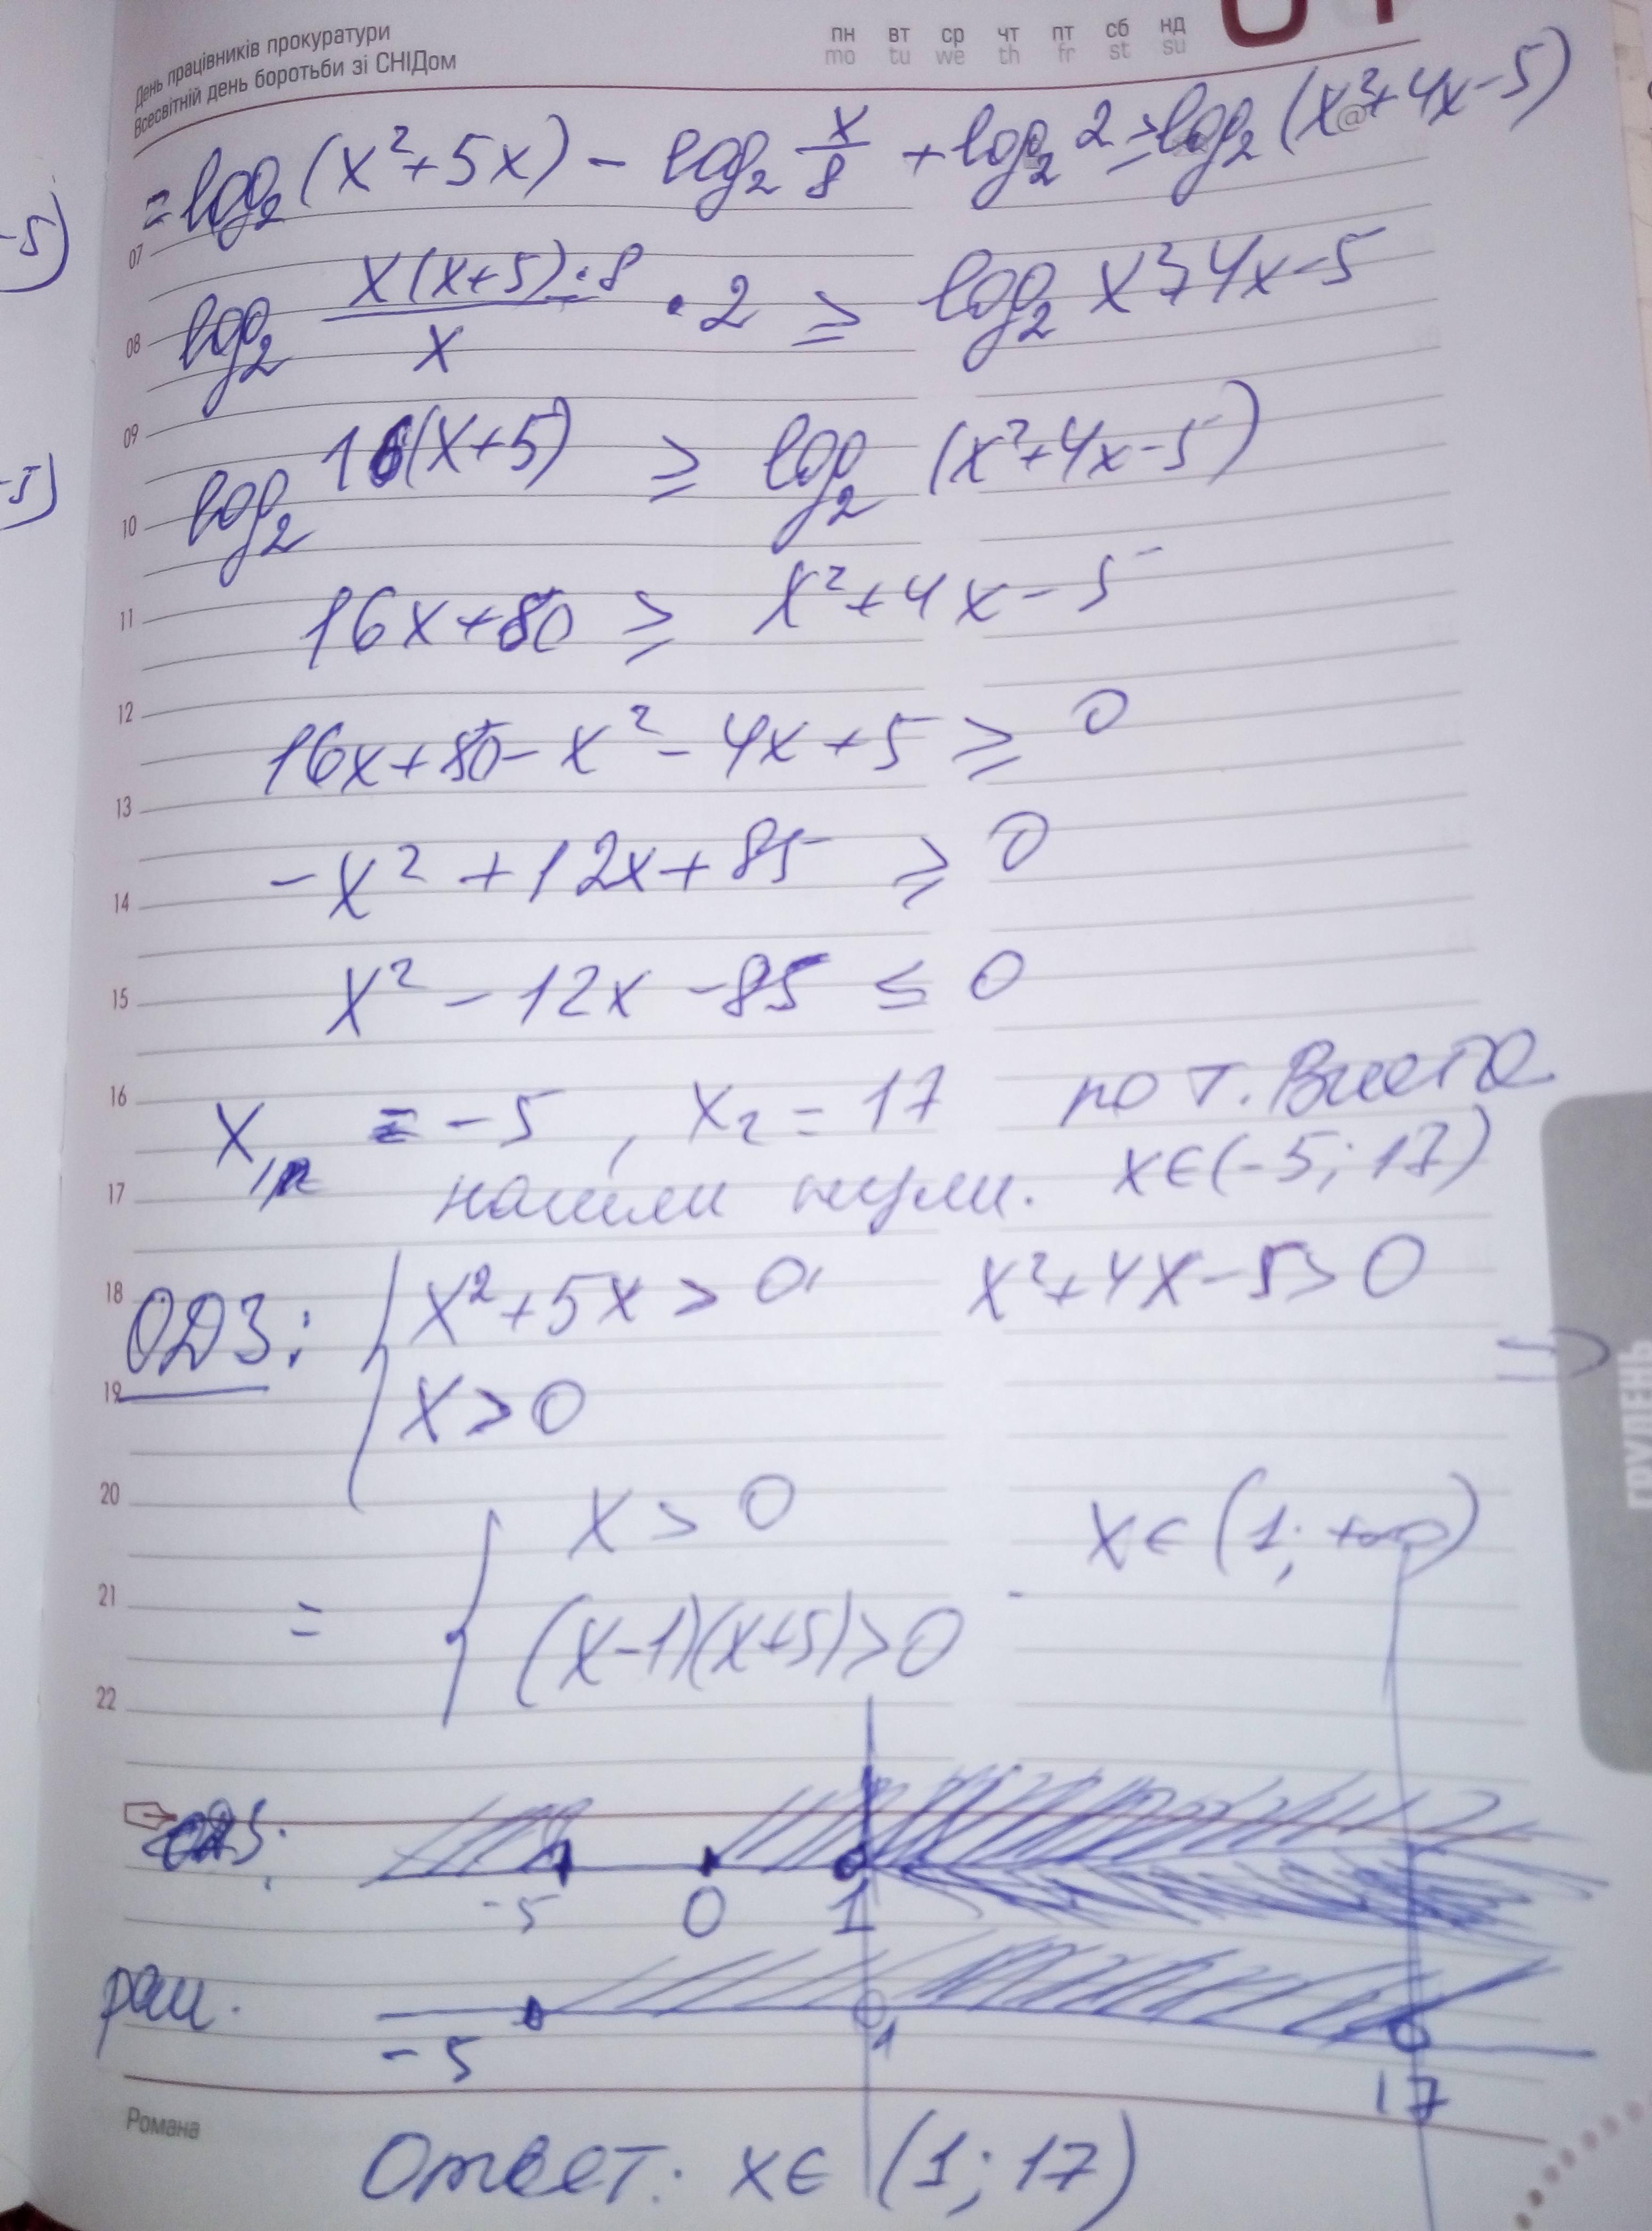 День працівників прокуратури
Всесвітній день боротьби зі СНІДом
пн вт ср чт пт сб нд
mo tu we th fr st su
= log₂(x²+5x) - log₂ x/8 + log₂ 2 ≥ log₂(x²+4x-5)
-5)
07
log₂ x(x+5)·8/x · 2 ≥ log₂ x²+4x-5
08
09
-5)
log₂ 16(x+5) ≥ log₂ (x²+4x-5)
10
16x+80 ≥ x²+4x-5
11
12
16x+80-x²-4x+5 ≥ 0
13
-x²+12x+85 ≥ 0
14
x²-12x-85 ≤ 0
15
16
x₁ = -5, x₂ = 17 по т. Виета
17
нашли нули. x∈(-5; 17)
18
ОДЗ: { x²+5x > 0, x²+4x-5>0
=>
19
x>0
ГРУДЕНЬ
20
{ x > 0 x∈(1; +∞)
21
= (x-1)(x+5)>0
22
ОДЗ:
-5 0 1
реш.
-5 1 17
Романа
Ответ: x∈ (1; 17)